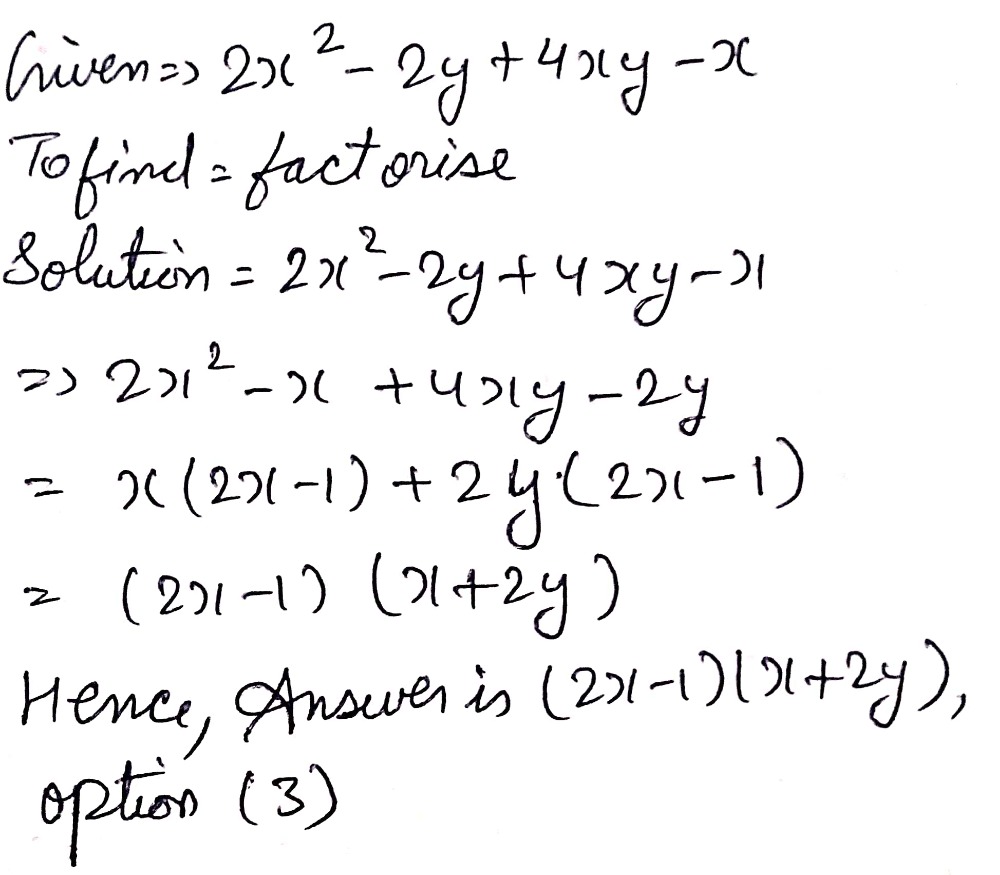 Given => 2x² - 2y + 4xy - x
To find = factorise
Solution = 2x² - 2y + 4xy - x
=> 2x² - x + 4xy - 2y
= x(2x-1) + 2y(2x-1)
= (2x-1) (x+2y)
Hence, Answer is (2x-1)(x+2y),
option (3)